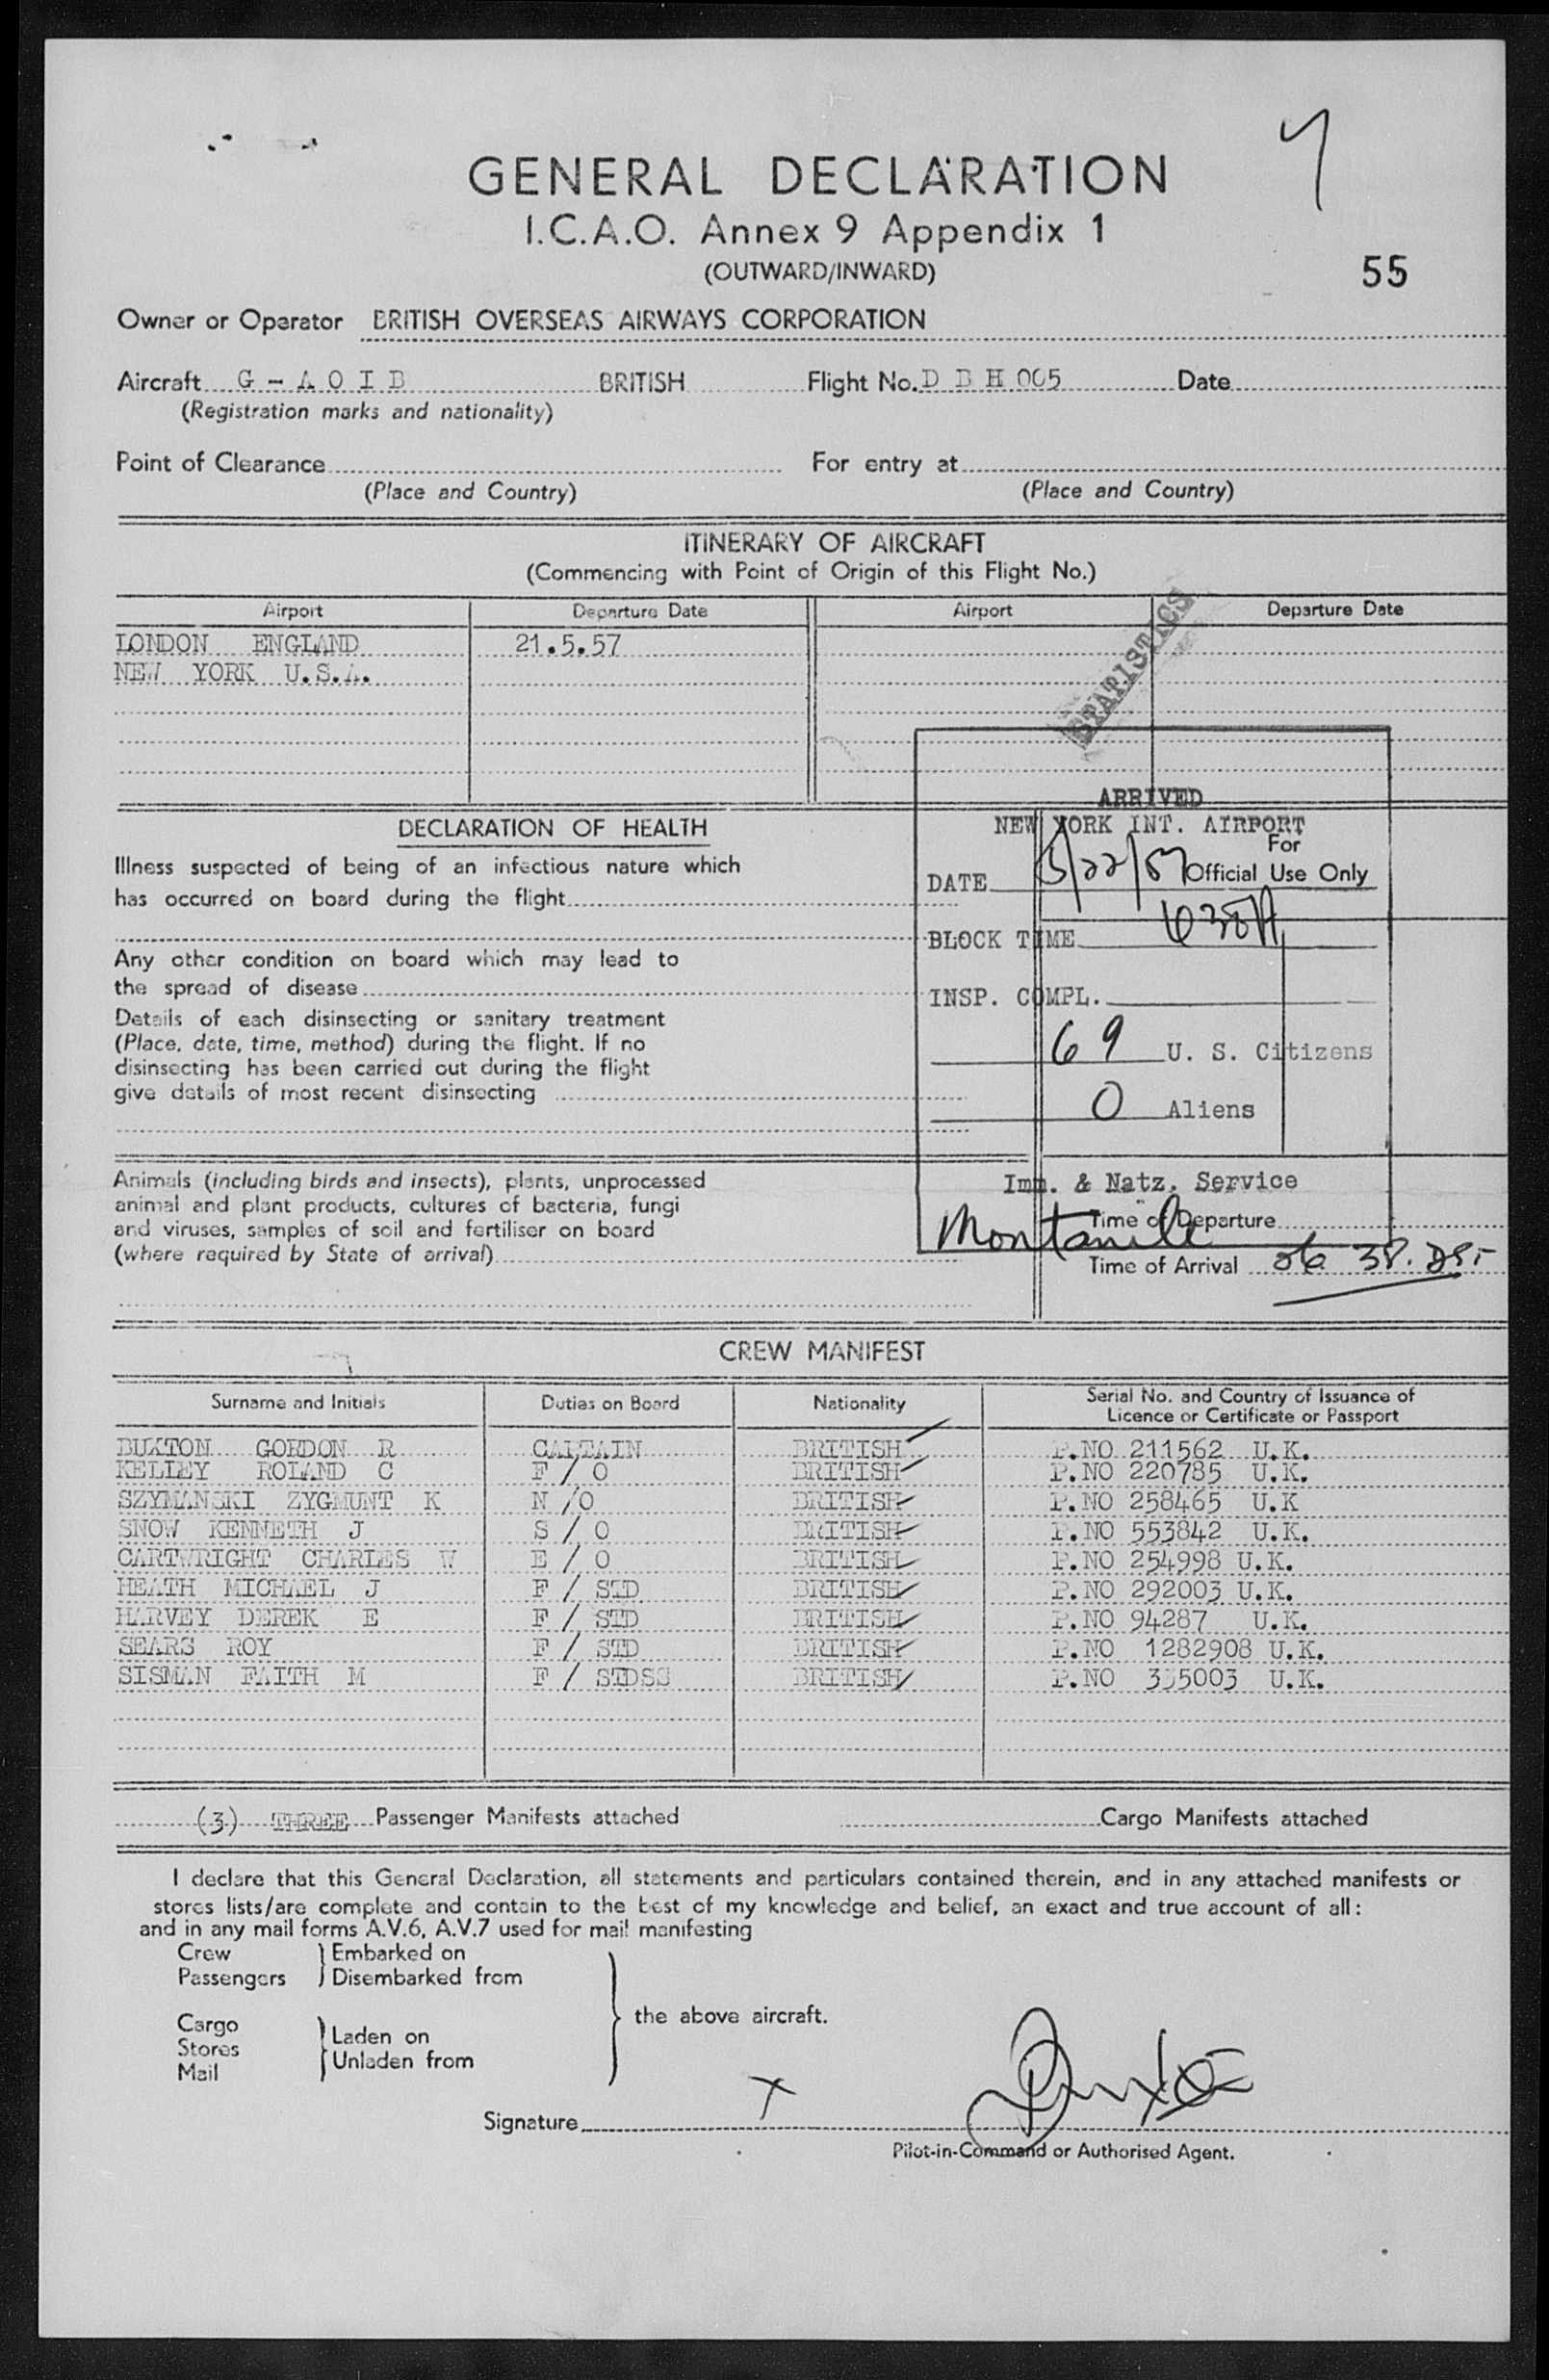 7
GENERAL DECLARATION
I.C.A.O. Annex 9 Appendix 1
(OUTWARD/INWARD)
55
Owner or Operator BRITISH OVERSEAS AIRWAYS CORPORATION
Aircraft G - A O I B BRITISH Flight No. D B H 005 Date
(Registration marks and nationality)
Point of Clearance For entry at
(Place and Country) (Place and Country)
ITINERARY OF AIRCRAFT
(Commencing with Point of Origin of this Flight No.)
Airport Departure Date Airport Departure Date
LONDON ENGLAND 21.5.57
NEW YORK U.S.A.
STATISTICS
ARRIVED
NEW YORK INT. AIRPORT
DATE 5/22/57
BLOCK TIME 638A
INSP. COMPL.
69 U. S. Citizens
0 Aliens
Imm. & Natz. Service
For
Official Use Only
DECLARATION OF HEALTH
Illness suspected of being of an infectious nature which
has occurred on board during the flight
Any other condition on board which may lead to
the spread of disease
Details of each disinsecting or sanitary treatment
(Place, date, time, method) during the flight. If no
disinsecting has been carried out during the flight
give details of most recent disinsecting
Animals (including birds and insects), plants, unprocessed
animal and plant products, cultures of bacteria, fungi
and viruses, samples of soil and fertiliser on board
(where required by State of arrival)
Time of Departure
Time of Arrival 06 38.
CREW MANIFEST
Surname and Initials Duties on Board Nationality Serial No. and Country of Issuance of
Licence or Certificate or Passport
BUXTON GORDON R CAPTAIN BRITISH P.NO 211562 U.K.
KELLEY ROLAND C F / O BRITISH P.NO 220785 U.K.
SZYMANSKI ZYGMUNT K N /O BRITISH P.NO 258465 U.K
SNOW KENNETH J S / O BRITISH P.NO 553842 U.K.
CARTWRIGHT CHARLES W E / O BRITISH P.NO 254998 U.K.
HEATH MICHAEL J F / STD BRITISH P.NO 292003 U.K.
HARVEY DEREK E F / STD BRITISH P.NO 94287 U.K.
SEARS ROY F / STD BRITISH P.NO 1282908 U.K.
SISMAN FAITH M F / STDSS BRITISH P.NO U.K.
(3) THREE Passenger Manifests attached Cargo Manifests attached
I declare that this General Declaration, all statements and particulars contained therein, and in any attached manifests or
stores lists/are complete and contain to the best of my knowledge and belief, an exact and true account of all:
and in any mail forms A.V.6, A.V.7 used for mail manifesting
Crew Embarked on
Passengers Disembarked from
the above aircraft.
Cargo
Stores Laden on
Mail Unladen from
Signature X
Pilot-in-Command or Authorised Agent.